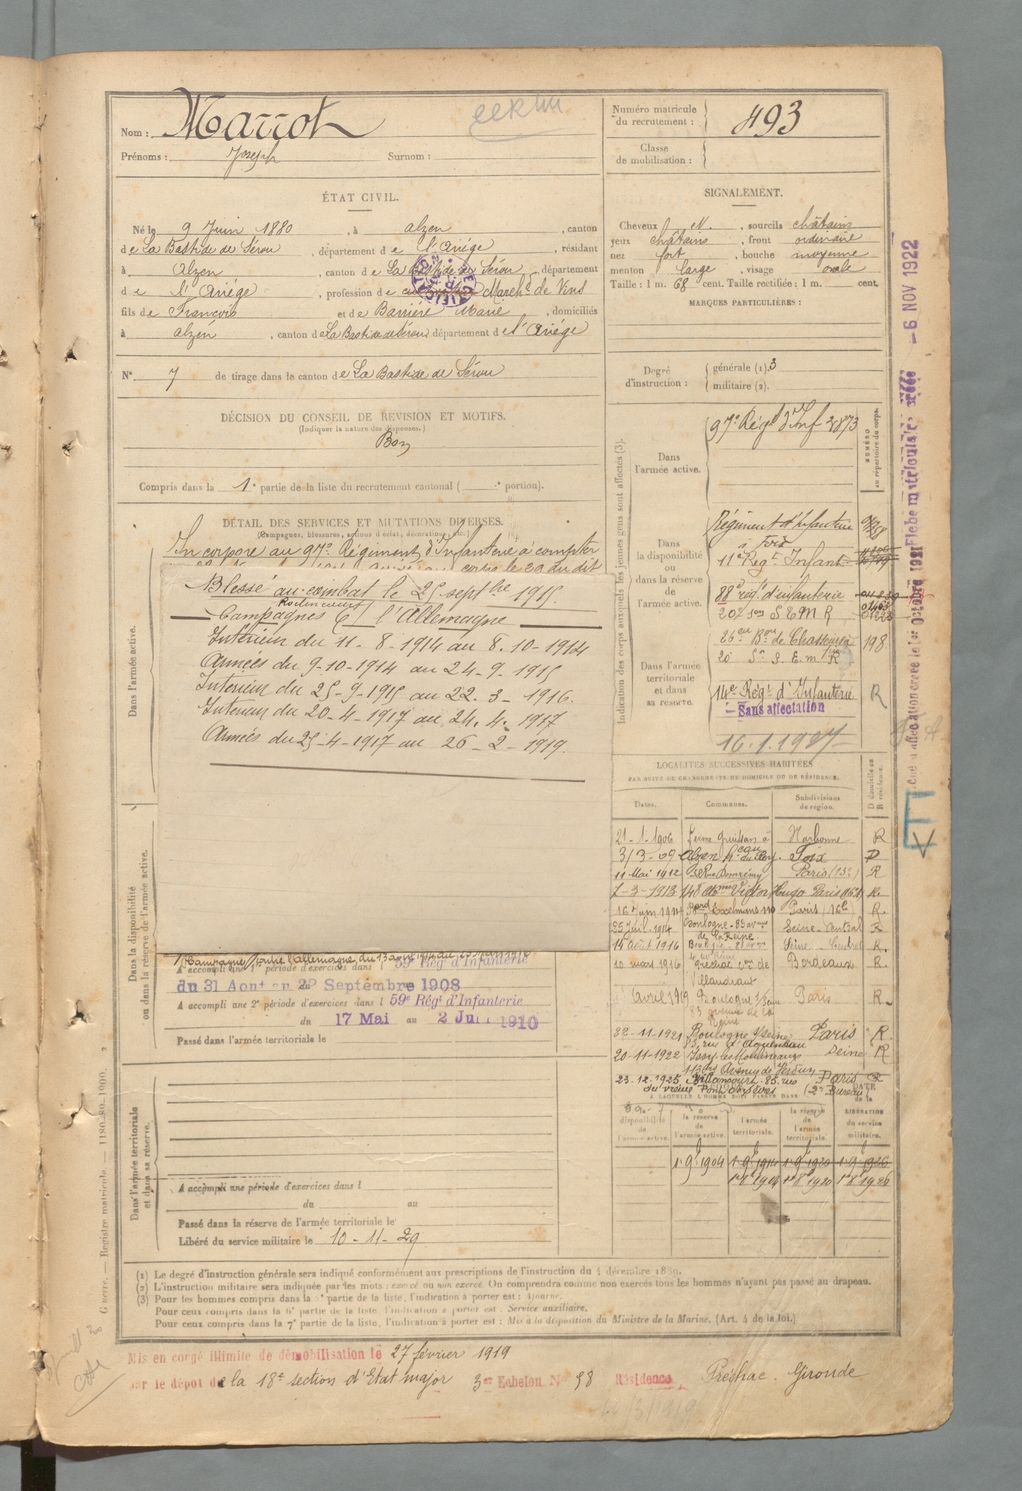 Nom : Marrot
Prénoms : Joseph Surnom :
Numéro matricule du recrutement : 493
Classe de mobilisation :
ÉTAT CIVIL.
Né le 9 Juin 1880, à Alzen, canton
de La Bastide de Sérou, département de l'Ariège, résidant
à Alzen, canton de La Bastide de Sérou, département
de l'Ariège, profession de March. de Vins
fils de François et de Barrière Marie, domiciliés
à Alzen, canton de La Bastide de Sérou département de l'Ariège
N° 7 de tirage dans le canton de La Bastide de Sérou
DÉCISION DU CONSEIL DE REVISION ET MOTIFS.
(Indiquer la nature des dispenses.)
Bon
Compris dans la 1e partie de la liste du recrutement cantonal ( e portion).
DÉTAIL DES SERVICES ET MUTATIONS DIVERSES.
(Campagnes, blessures, actions d'éclat, décorations, etc.)
Incorporé au 97e Régiment d'Infanterie à compter
Blessé au combat le 25 septbre 1915.
Campagnes C/ l'Allemagne
Intérieur du 11-8-1914 au 8.10-1914
Armées du 9-10-1914 au 24-9-1915
Intérieur du 25-9-1915 au 22-3-1916.
Intérieur du 20-4-1917 au 24.4.1917
Armées du 25-4-1917 au 26-2-1919.
Dans l'armée active.
Dans la disponibilité ou dans la réserve de l'armée active.
A accompli une 1e période d'exercices dans 59e Rég d'Infanterie
du 31 Août au Septembre 1908
A accompli une 2e période d'exercices dans l 59e Rég d'Infanterie
du 17 Mai au 2 Juin 1910
Passé dans l'armée territoriale le
Dans l'armée territoriale et dans sa réserve.
A accompli une période d'exercices dans l
du au
Passé dans la réserve de l'armée territoriale le
Libéré du service militaire le 10-11-29
SIGNALEMENT.
Cheveux N., sourcils châtains
yeux châtains, front ordinaire
nez fort, bouche moyenne
menton large, visage ovale
Taille : 1 m. 68 cent. Taille rectifiée : 1 m. cent.
MARQUES PARTICULIÈRES :
Degré d'instruction : générale (1). 3
militaire (2).
Indication des corps auxquels les jeunes gens sont affectés (3).
NUMÉRO au répertoire du corps.
Dans l'armée active.
97e Régt d'Inf 2873
Dans la disponibilité ou dans la réserve de l'armée active.
Régiment d'Infanterie
à Foix
11e Régt Infant
88e régt d'infanterie
20e Son S E M R
26e Bon de Chasseurs 198
20e Son S. E. m. R
Dans l'armée territoriale et dans sa réserve.
14e Régt d'Infanterie R
Sans affectation
16.1.1927
LOCALITÉS SUCCESSIVES HABITÉES
PAR SUITE DE CHANGEMENTS DE DOMICILE OU DE RÉSIDENCE.
Dates. Communes. Subdivisions de région. D domicile ou R résidence.
21-1-1906 Narbonne R
3/3-09 Alzen Foix D
11 Mai 1912 Paris R
7-3-1913 Victor Hugo Paris R.
16 Juin 1914 Bard Exelmans Paris (16e) R.
25 Juil. 1914 Boulogne Seine-Central R
15 Août 1916 Seine Central R.
10 mars 1916 Préchac con de Villandraut Bordeaux R.
avril 1919 Boulogne s/Seine Paris R
22-11-1921 Boulogne s/Seine Paris R.
20-11-1922 Issy les Moulineaux Seine R
113 bis Avenue de Verdun
23-12-1925 Billancourt 85 rue Paris R
du vieux Pont de Sèvres (2e Bureau)
DATE
À LAQUELLE L'HOMME DOIT PASSER DANS
la disponibilité de l'armée active. la réserve de l'armée active. l'armée territoriale. la réserve de l'armée territoriale. LIBÉRATION du service militaire.
1-9e 1904 1-9e 1914 1-9e 1920 1-9-1926
1er 8e 1914 1er 8e 1920 1er 8e 1926
(1) Le degré d'instruction générale sera indiqué conformément aux prescriptions de l'instruction du 4 décembre 1889.
(2) L'instruction militaire sera indiquée par les mots : exercé ou non exercé. On comprendra comme non exercés tous les hommes n'ayant pas passé au drapeau.
(3) Pour les hommes compris dans la 2e partie de la liste, l'indication à porter est : Ajourné.
Pour ceux compris dans la 6e partie de la liste, l'indication à porter est : Service auxiliaire.
Pour ceux compris dans la 7e partie de la liste, l'indication à porter est : Mis à la disposition du Ministre de la Marine. (Art. 4 de la loi.)
Mis en congé illimité de démobilisation le 27 février 1919
par le dépôt de la 18e section d'Etat major 3er Echelon N° 98 Résidence Préchac. Gironde
Guerre. — Registre matricule. — 1180-80-1900.
Fiche matriculaire créée le
- 6 NOV 1922